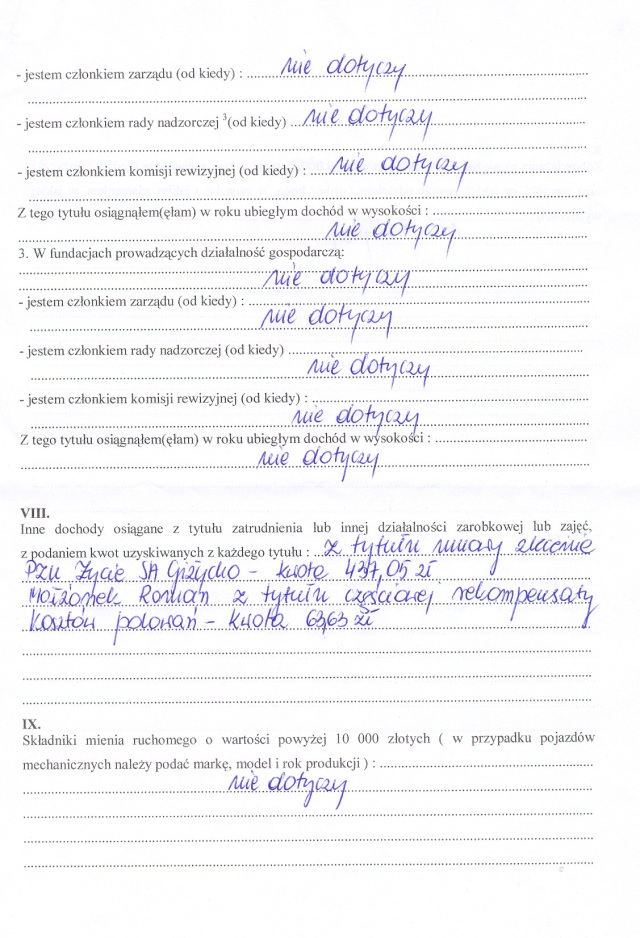 - jestem członkiem zarządu (od kiedy) : nie dotyczy
- jestem członkiem rady nadzorczej ³(od kiedy) nie dotyczy
- jestem członkiem komisji rewizyjnej (od kiedy) : nie dotyczy
Z tego tytułu osiągnąłem(ęłam) w roku ubiegłym dochód w wysokości :
nie dotyczy
3. W fundacjach prowadzących działalność gospodarczą:
nie dotyczy
- jestem członkiem zarządu (od kiedy) :
nie dotyczy
- jestem członkiem rady nadzorczej (od kiedy)
nie dotyczy
- jestem członkiem komisji rewizyjnej (od kiedy) :
nie dotyczy
Z tego tytułu osiągnąłem(ęłam) w roku ubiegłym dochód w wysokości :
nie dotyczy
VIII.
Inne dochody osiągane z tytułu zatrudnienia lub innej działalności zarobkowej lub zajęć,
z podaniem kwot uzyskiwanych z każdego tytułu : z tytułu umowy zlecenie
PZU Życie SA Giżycko - kwota 437,05 zł
Małżonek Roman z tytułu częściowej rekompensaty
kosztów polowań - kwota 63,63 zł
IX.
Składniki mienia ruchomego o wartości powyżej 10 000 złotych ( w przypadku pojazdów
mechanicznych należy podać markę, model i rok produkcji ) :
nie dotyczy